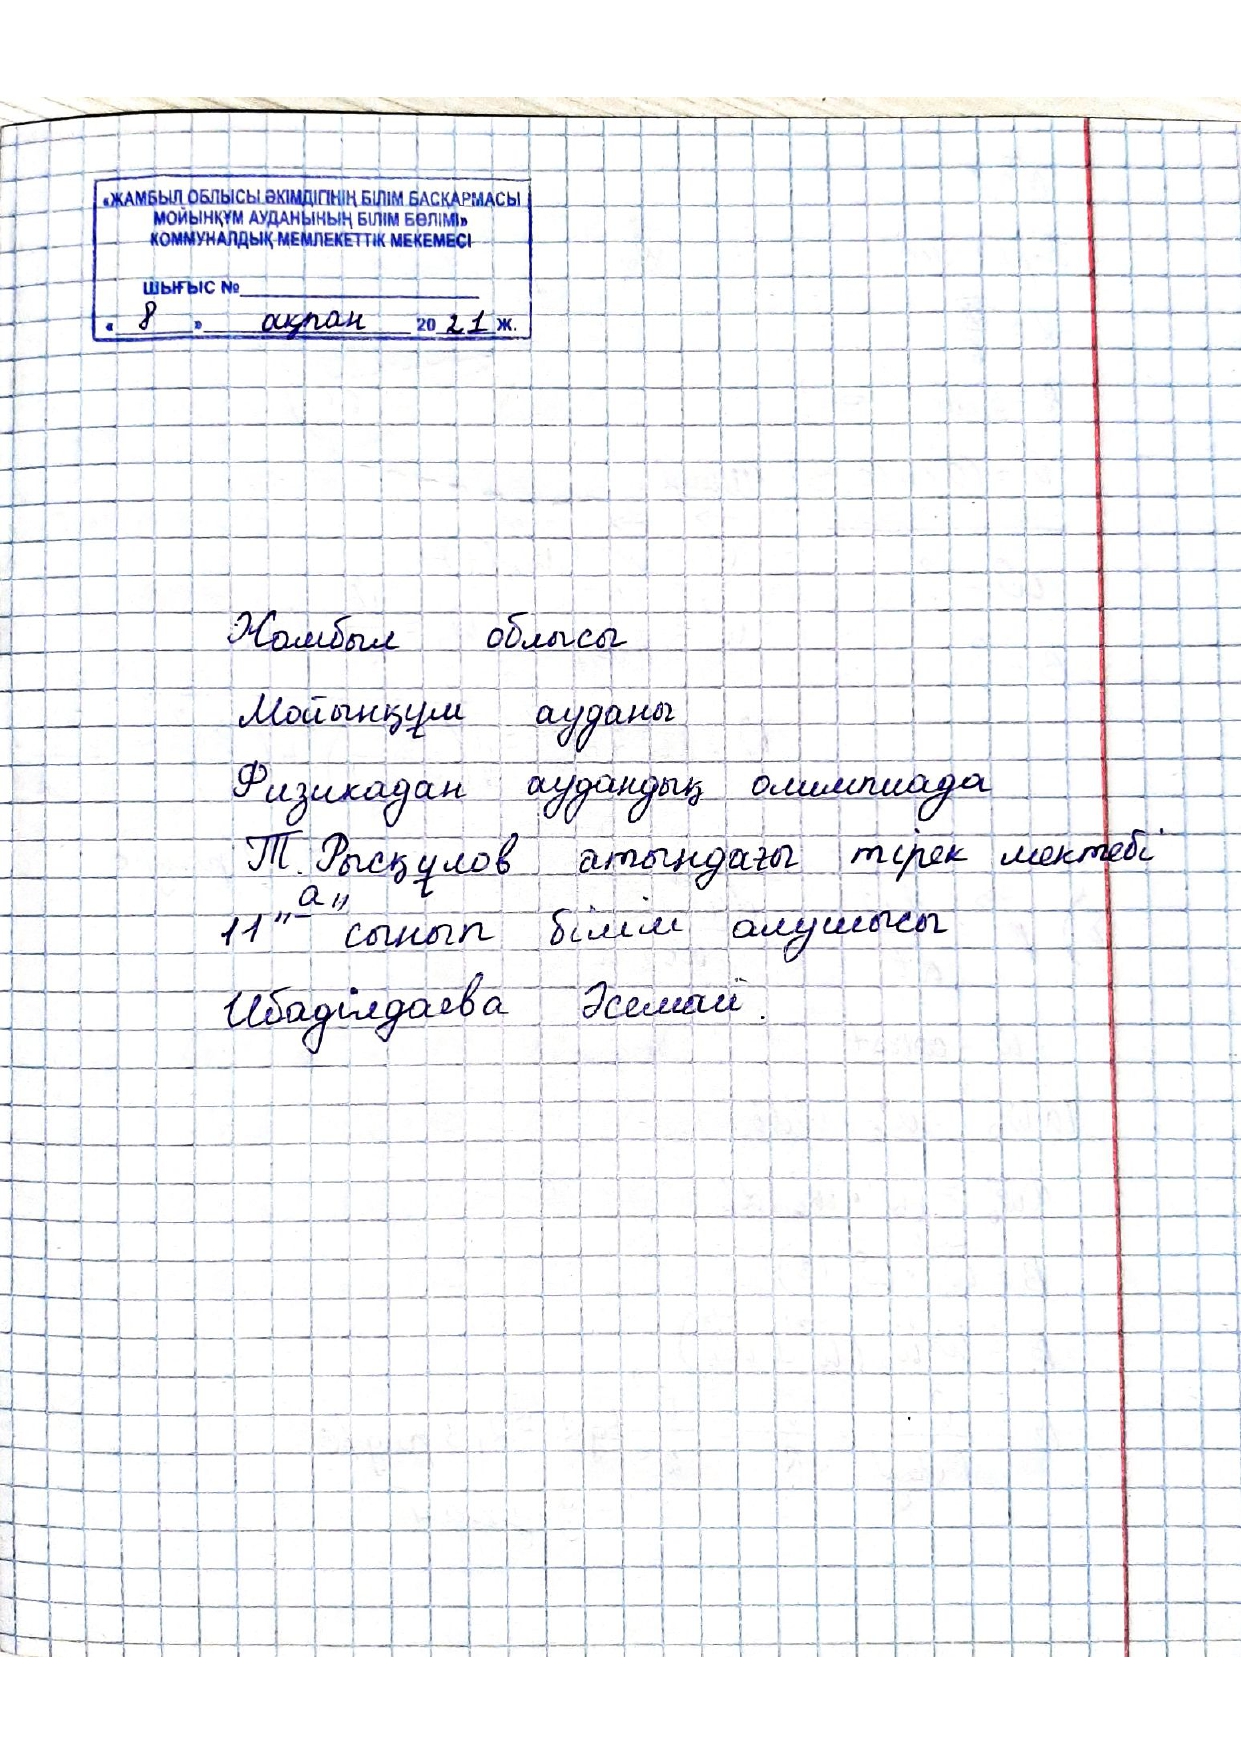 «ЖАМБЫЛ ОБЛЫСЫ ӘКІМДІГІНІҢ БІЛІМ БАСҚАРМАСЫ
МОЙЫНҚҰМ АУДАНЫНЫҢ БІЛІМ БӨЛІМІ»
КОММУНАЛДЫҚ МЕМЛЕКЕТТІК МЕКЕМЕСІ
ШЫҒЫС №
« 8 » ақпан 20 21 Ж.
Жамбыл облысы
Мойынқұм ауданы
Физикадан аудандық олимпиада
Т. Рысқұлов атындағы тірек мектебі
11 "а" сынып білім алушысы
Ибаділдаева Әсемай.